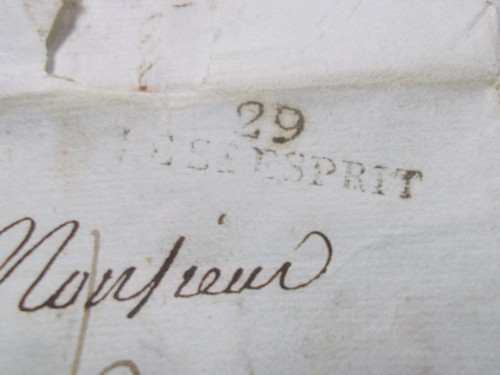 29
ESPRIT
Monsieur